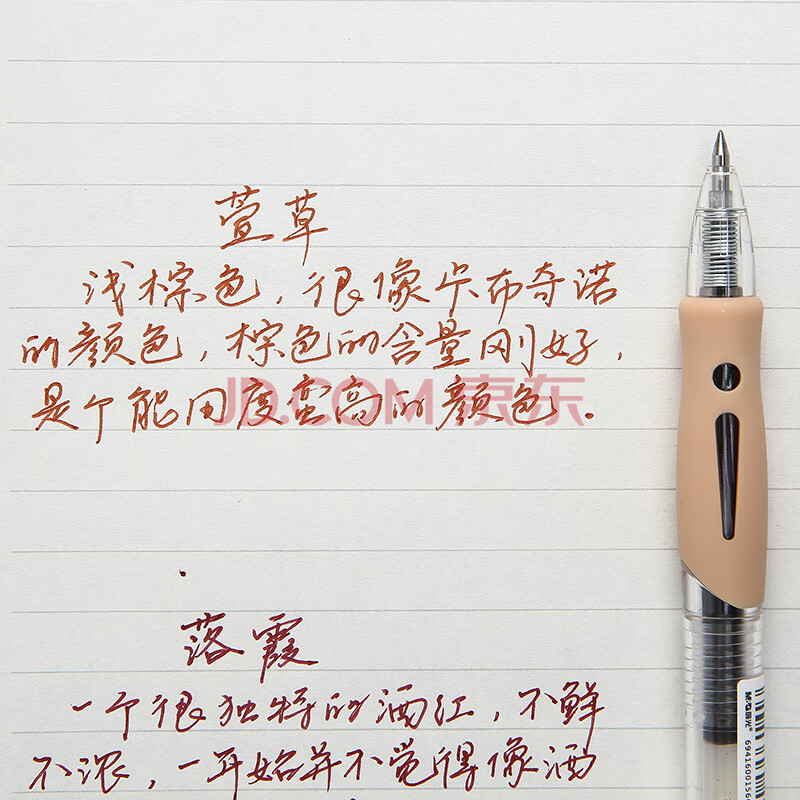 萱草
浅棕色，很像卡布奇诺
的颜色，棕色的含量刚好，
是个能用度蛮高的颜色。
JD.COM 京东
落霞
一个很独特的酒红，不鲜
不浓，一开始并不觉得像酒
M&G晨光
69416001566